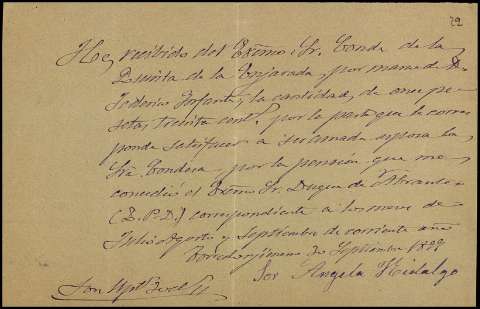 He recibido del Exmo. Sr. Conde de la
Quinta de la Enjarada, por mano de D.
Federico Infante, la cantidad, de once pe-
setas, treinta cent.s por la parte que le corres
ponde satisfacer a su amada esposa la
Sra. Condesa, por la pension que me
concedió el Exmo. Sr. Duque de Abrantes
(E.P.D.) correspondiente a los meses de
Julio Agosto y Septiembre de corriente año
de Septiembre 1899
Sor Angela Hidalgo
Son